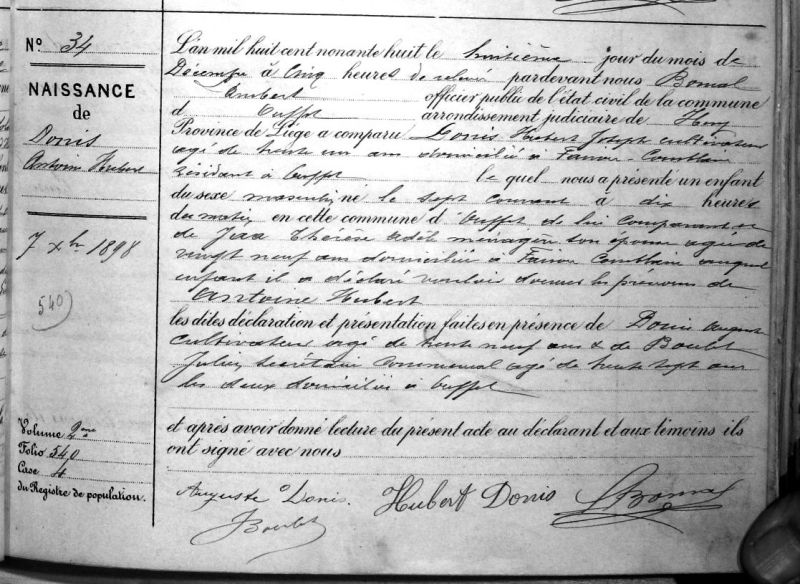 N° 34
NAISSANCE
de
Donis
Antoine Hubert
7 Xbr 1898
540
Volume 2me
Folio 540
Case 4
du Registre de population.
L'an mil huit cent nonante huit le huitième jour du mois de
Décembre à cinq heures de relevé pardevant nous Bomal
Lambert officier public de l'état civil de la commune
d' Ouffet arrondissement judiciaire de Huy
Province de Liège a comparu Donis Hubert Joseph cultivateur
agé de trente un ans domicilié à Comblain
résidant à Ouffet le quel nous a présenté un enfant
du sexe masculin né le sept courant à dix heures
du matin en cette commune d'Ouffet de lui comparant et
de Thérèse ménagère son épouse agée de
vingt neuf ans domiciliée à Comblain auquel
enfant il a déclaré vouloir donner les prénoms de
Antoine Hubert
les dites déclaration et présentation faites en présence de Donis August
cultivateur agé de trente neuf ans & de Boulet
Julien secrétaire communal agé de trente sept ans
les deux domiciliés à Ouffet
et après avoir donné lecture du présent acte au déclarant et aux témoins ils
ont signé avec nous
Auguste Donis. Hubert Donis LBomal
JBoulet